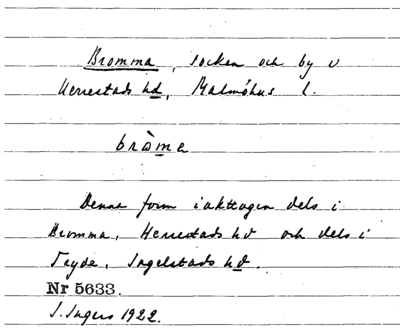 Bromma, socken och by i
Herrestads hd, Malmöhus l.
bròma
Denna form iakttagen dels i
Bromma, Herrestads hd och dels i
Tryde, Ingelstads hd.
Nr 5633.
I. Ingers 1922.